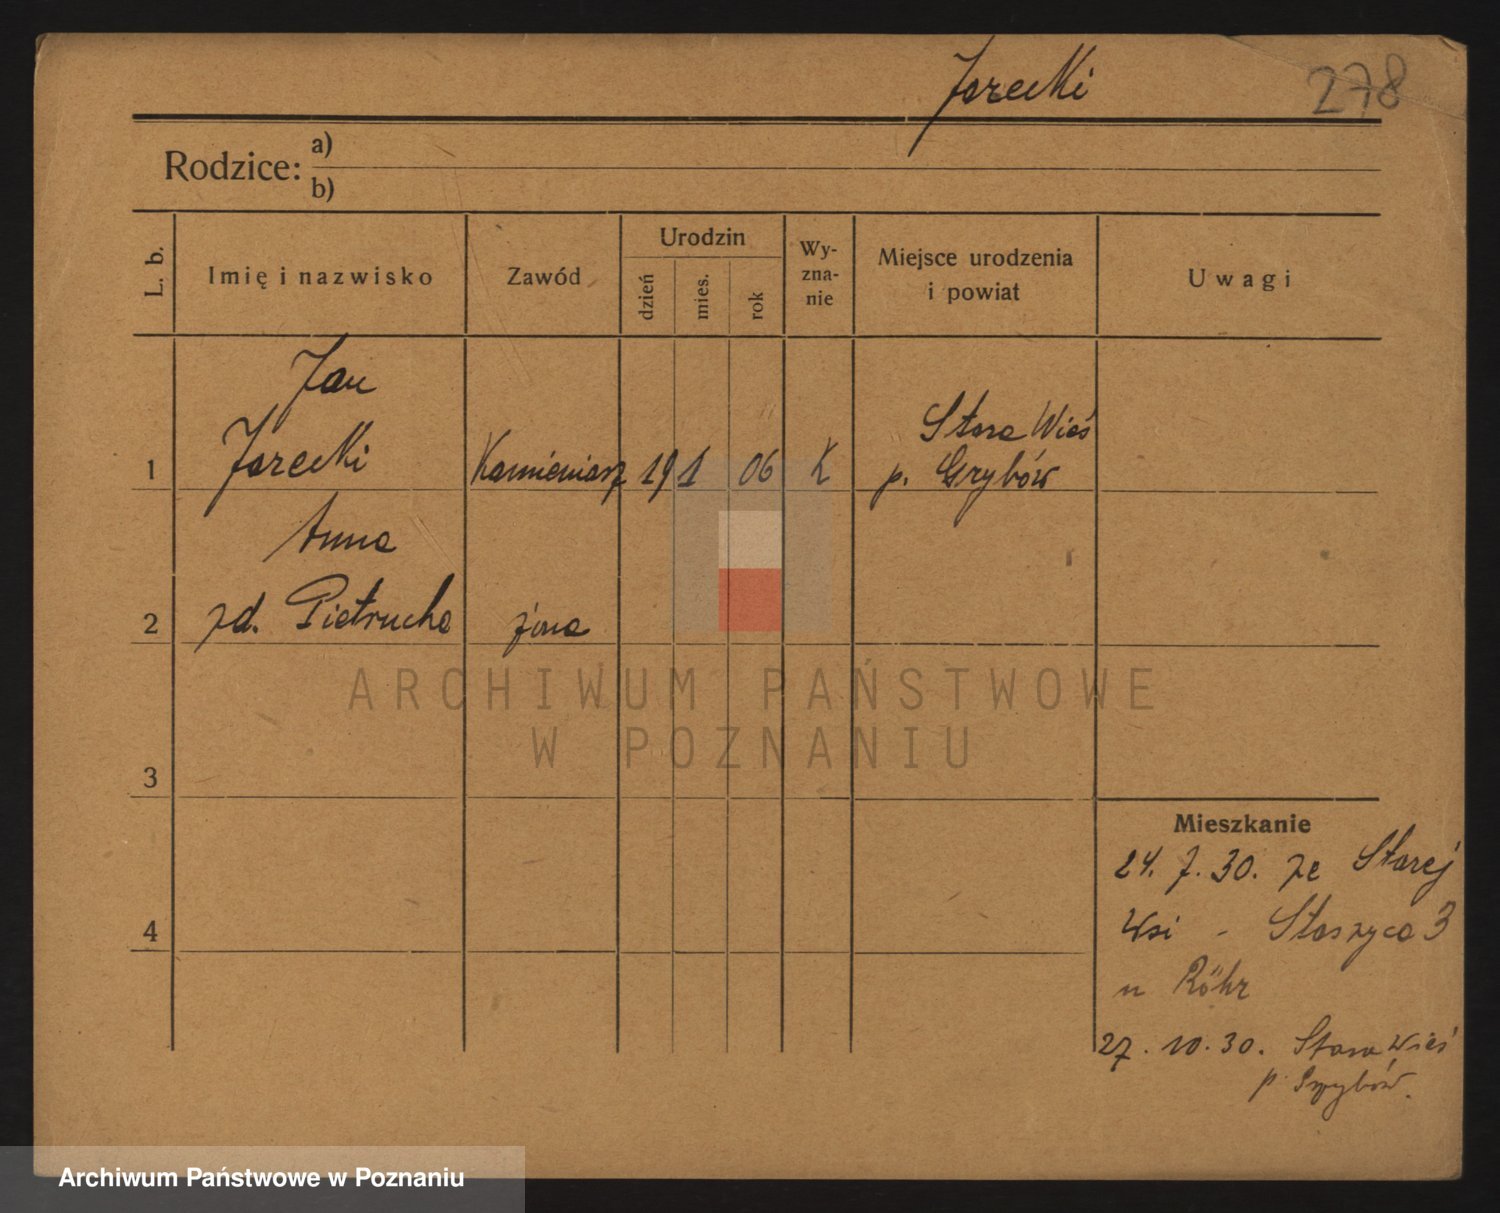 Jarecki
278
Rodzice:
a)
b)
L. b.
Imię i nazwisko
Zawód
Urodzin
dzień
mies.
rok
Wy-
zna-
nie
Miejsce urodzenia
i powiat
Uwagi
Jan
Jarecki
1
Kamieniarz
19
1
06
K
Stara Wieś
p. Grybów
Anna
2
zd. Pietrucha
żona
ARCHIWUM PAŃSTWOWE
W POZNANIU
3
4
Mieszkanie
24. 7. 30. ze Starej
Wsi - Staszyca 3
u Röhr
27. 10. 30. Stara Wieś
p. Grybów.
Archiwum Państwowe w Poznaniu